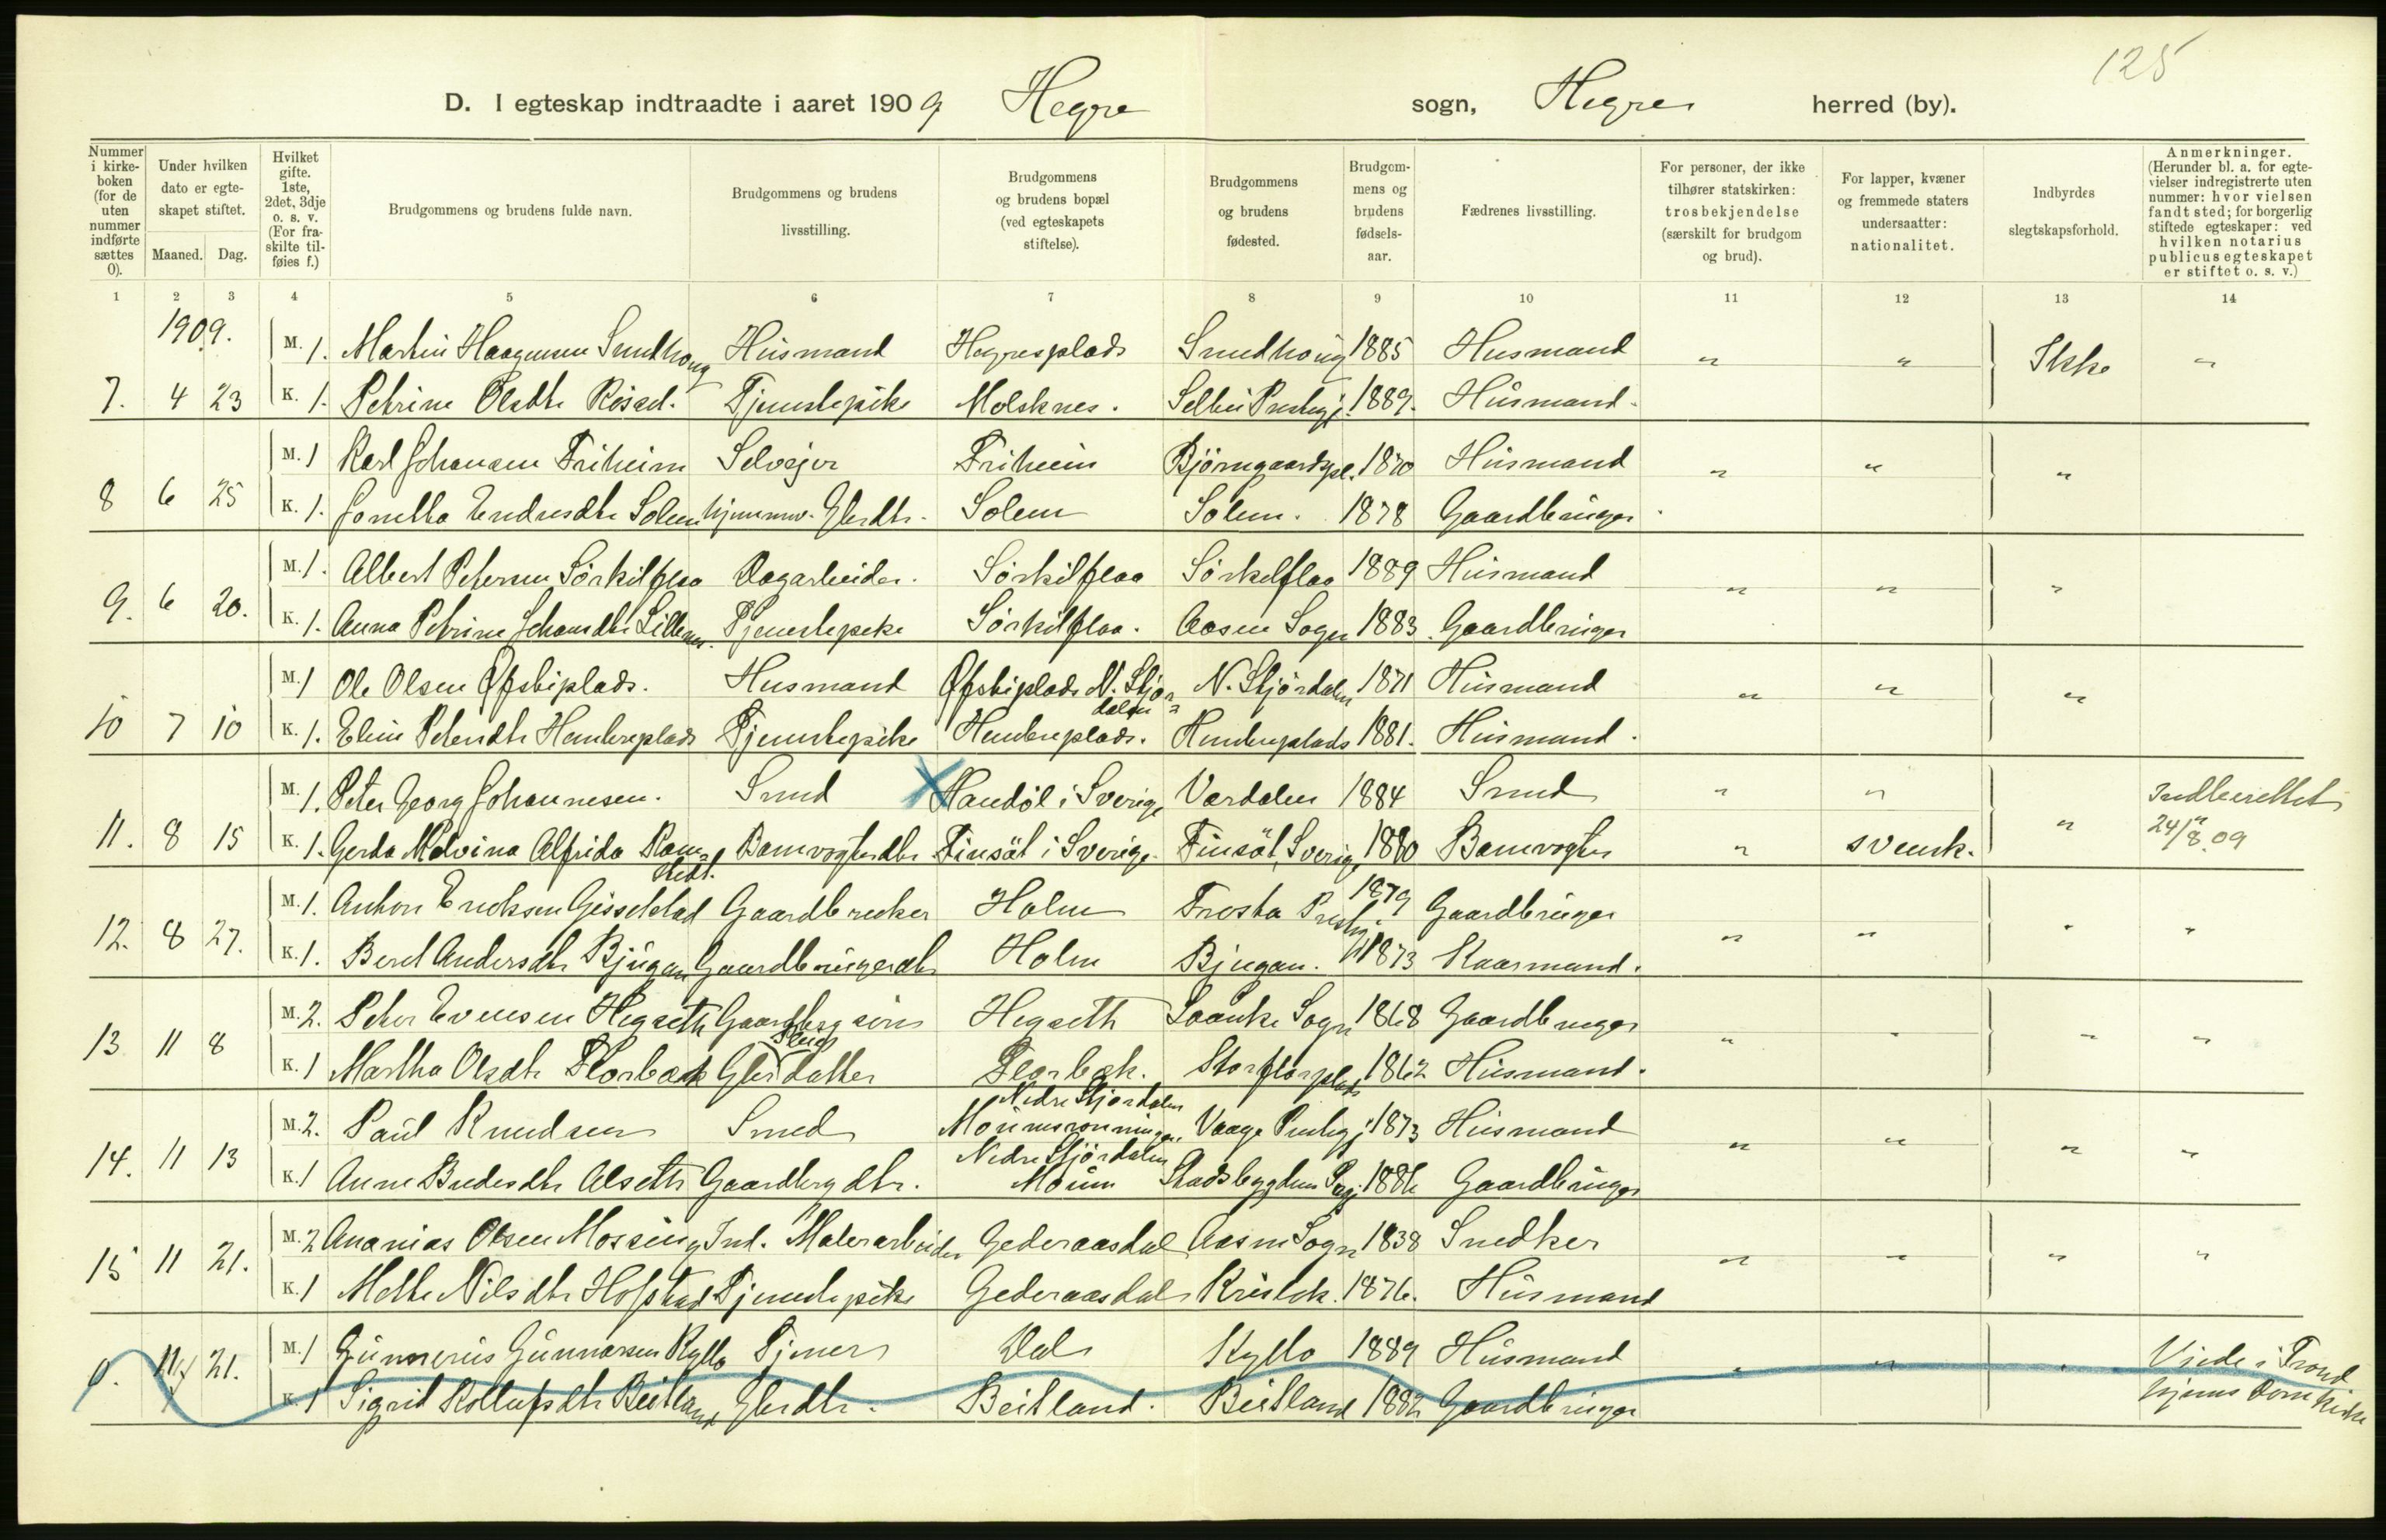 125
D. I egteskap indtraadte i aaret 1909 Hegre sogn, Hegre herred (by).
Nummer i kirke-boken (for de uten nummer indførte sættes 0).
Under hvilken dato er egte-skapet stiftet.
Maaned. Dag.
Hvilket gifte. 1ste, 2det, 3dje o. s. v. (For fra-skilte til-føies f.)
Brudgommens og brudens fulde navn.
Brudgommens og brudens livsstilling.
Brudgommens og brudens bopæl (ved egteskapets stiftelse).
Brudgommens og brudens fødested.
Brudgom-mens og brudens fødsels-aar.
Fædrenes livsstilling.
For personer, der ikke tilhører statskirken: trosbekjendelse (særskilt for brudgom og brud).
For lapper, kvæner og fremmede staters undersaatter: nationalitet.
Indbyrdes slegtskapsforhold.
Anmerkninger. (Herunder bl. a. for egte-vielser indregistrerte uten nummer: hvor vielsen fandt sted; for borgerlig stiftede egteskaper: ved hvilken notarius publicus egteskapet er stiftet o. s. v.)
1 2 3 4 5 6 7 8 9 10 11 12 13 14
1909.
M. 1. Martin Haagensen Smidhaug Husmand Hegresplads Smidhaug 1885 Husmand " " Ikke "
7. 4 23 K. 1. Petrine Olsdtr Tjenestepike Molsknes. Selbu Prestegj. 1889. Husmand.
M. 1 Karl Johansen Friheim Selvejer Friheim Björngaardspl. 1870 Husmand " " "
8 6 25 K. 1. Jonetta Endresdtr Solem hjemmev. Gbrdtr. Solem Solem. 1878 Gaardbruger
M. 1. Albert Petersen Sörkilflaa Dagarbeider. Sörkilflaa Sörkilflaa 1889 Husmand " " "
9. 6 20. K. 1. Anna Petrine Johansdtr Tjenestepike Sörkilflaa. Aasen Sogn 1883. Gaardbruger
M. 1 Ole Olsen Øfstiplads. Husmand Øfstiplads N. Stjör-dalen N. Stjördalen 1871 Husmand " " "
10 7 10 K. 1. Eline Petersdtr Hembreplads Tjenestepike Hembreplads. Hembreplads 1881. Husmand.
M. 1. Peter Georg Johannesen. Smed Handöl i Sverige Værdalen 1884 Smed " " Indberettet
11. 8 15 K. 1. Gerda Malvina Alfrida Ramstedt. Banevogterdtr Finsät i Sverige. Finsät, Sverige 1880 Banevogter " svensk. " 24/8.09
M. 1. Anton Ericksen Gaardbruker Holm Frosta Prestegj. 1879 Gaardbruger
12. 8 27. K. 1. Beret Andersdtr Bjugan Gaardbrugerdtr Holm Bjugan. 1873 Kaarmand. " " " "
M. 2. Peter Evensen Hegseth Gaardbrg sön Hegseth Saanke Sogn 1868 Gaardbruger
13 11 8 K. 1 Martha Olsdtr Florbæk Gbr datter Florbæk. Storflorplads 1862 Husmand. " " " "
M. 2. Paul Knudsen Smed Nedre Stjördalen Vaage Prestegj. 1873 Husmand
14. 11 13 K. 1 Anne Bredesdtr Alseth Gaardbrg dtr. Nedre Stjördalen Moum Stadsbygden Prgj. 1886 Gaardbruger " " " "
M. 2 Ananias Olsen Mossing Ind. Malerarbeider Gederaasdal Aasen Sogn 1838 Snedker
15 11 21. K. 1 Mette Nilsdtr Hofstad Tjenestepike Gederaasdal 1876. Husmand " " " "
M. 1 Gunnerius Gunnarsen Kyllo Tjener Dal Kyllo 1889 Husmand Viede i Trond-
0. 11 21. K. 1 Sigrid Rollufsdtr Beitland Gbrdtr. Beitland. Beitland 1882 Gaardbruger " " " hjems Domkirke